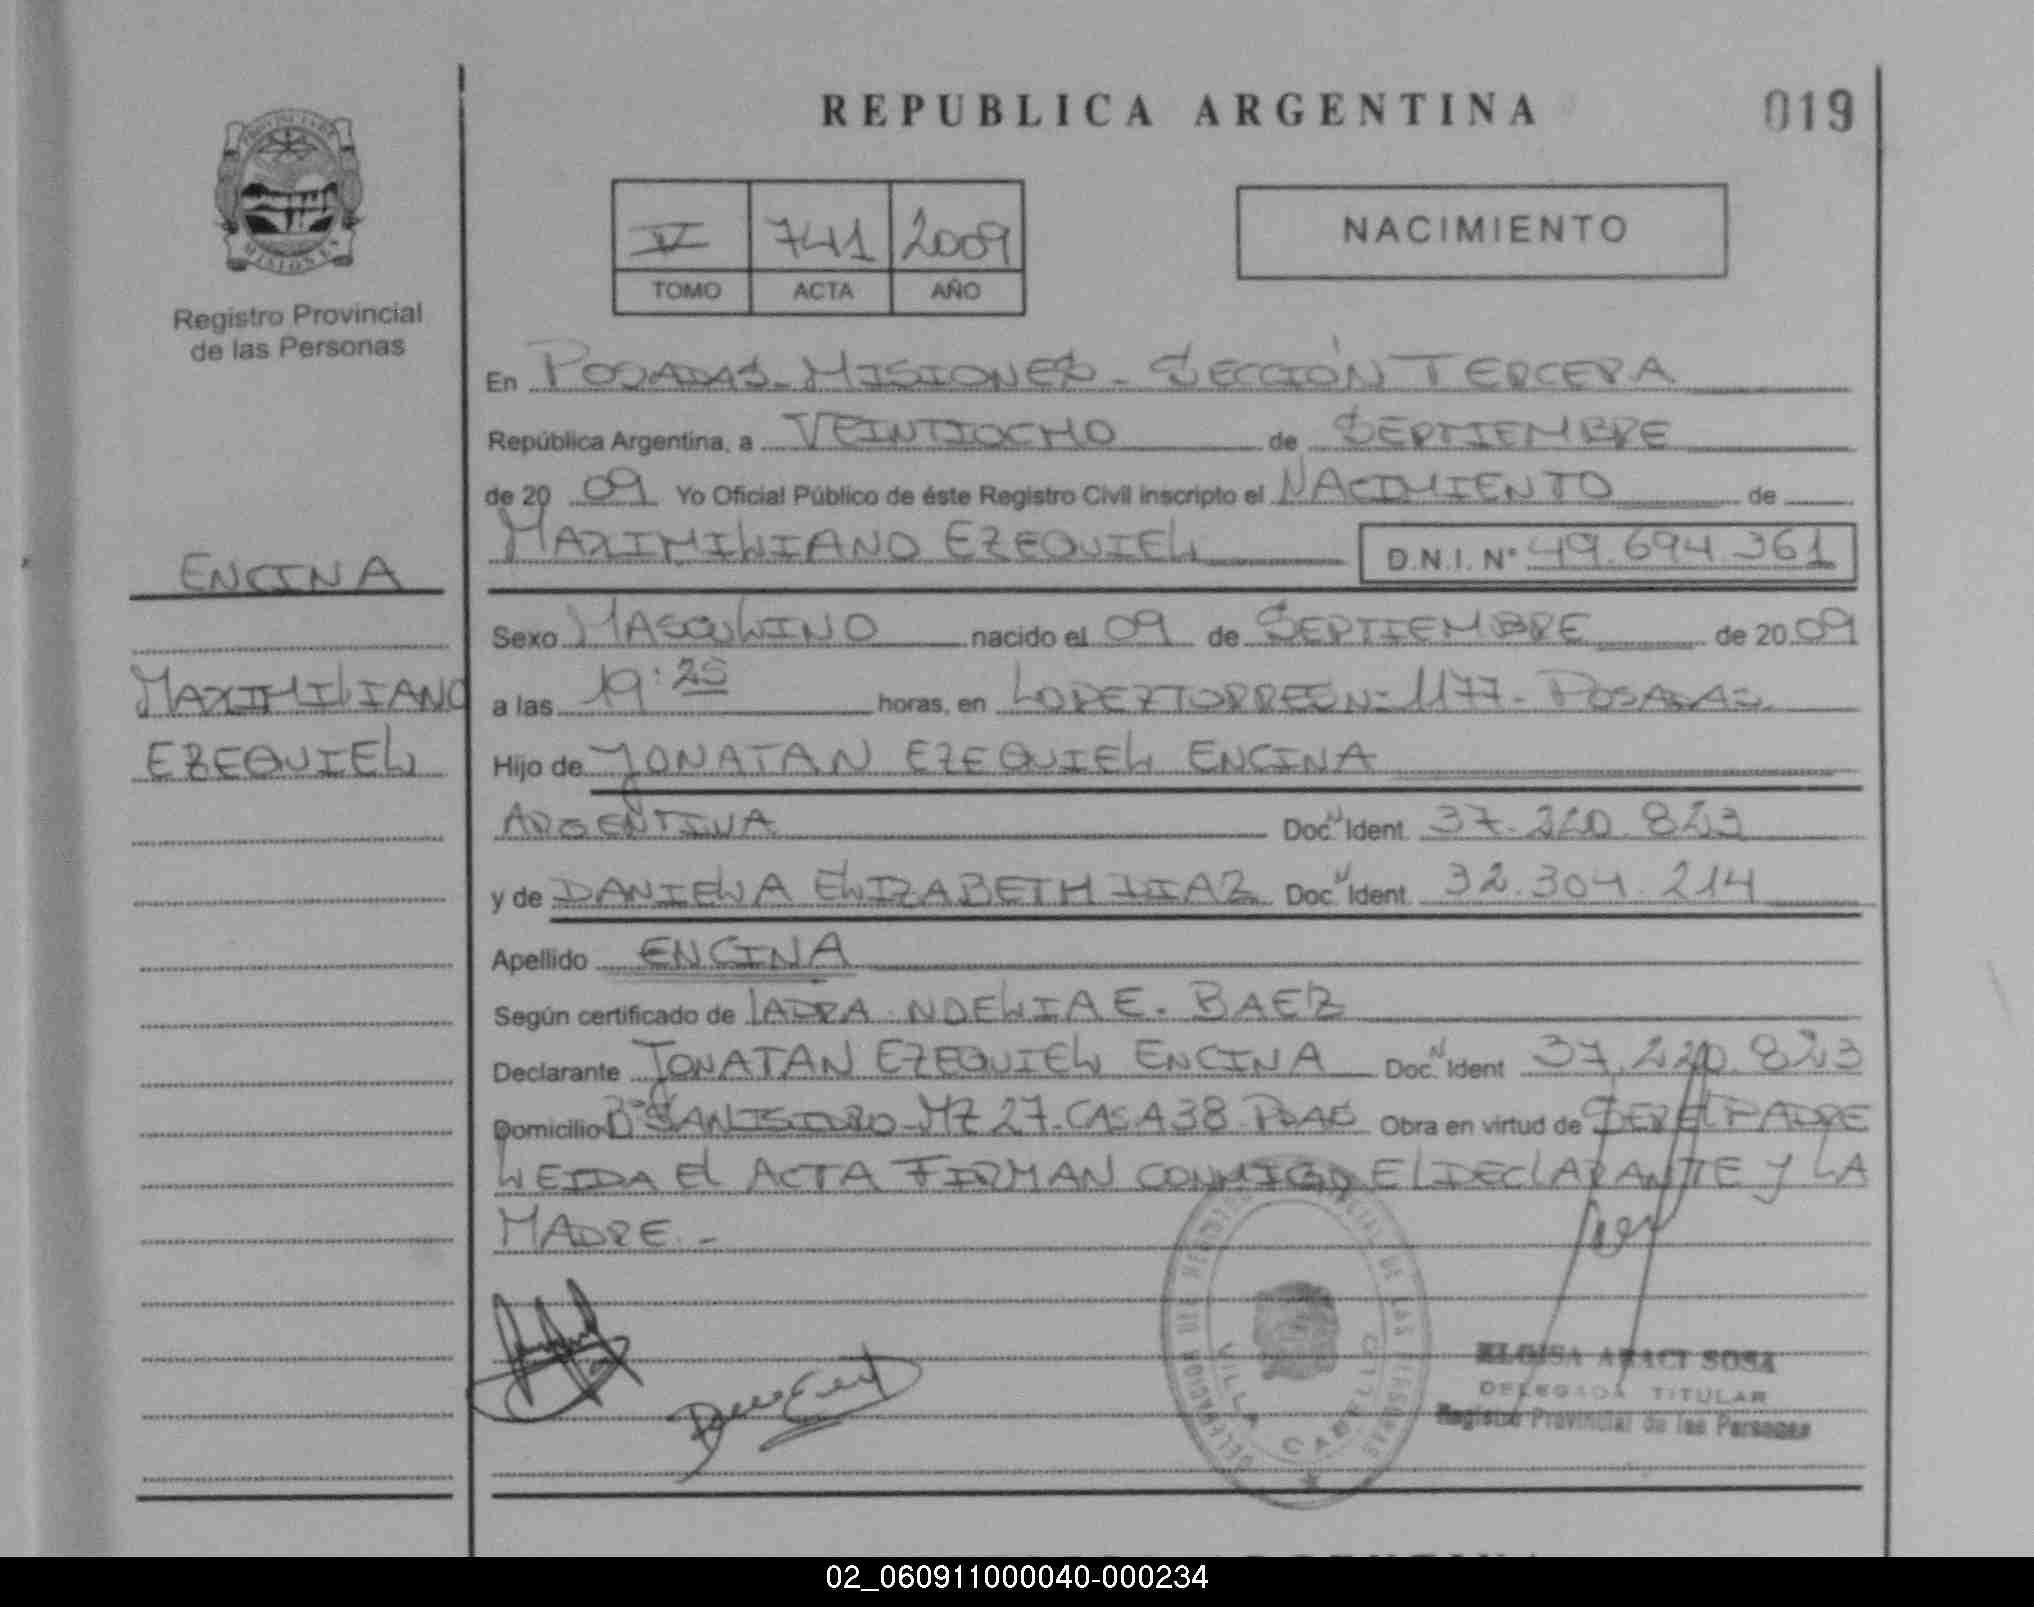 REPUBLICA ARGENTINA
019
PROVINCIA DE
MISIONES
Registro Provincial
de las Personas
V 741 2009
TOMO ACTA AÑO
NACIMIENTO
En POSADAS - MISIONES - SECCIÓN TERCERA
República Argentina, a VEINTIOCHO de SEPTIEMBRE
de 20 09 Yo Oficial Público de éste Registro Civil inscripto el NACIMIENTO de
MAXIMILIANO EZEQUIEL D.N.I. Nº 49.694.361
ENCINA
MAXIMILIANO
EZEQUIEL
Sexo MASCULINO nacido el 09 de SEPTIEMBRE de 20 09
a las 19:25 horas, en LOPEZ TORRES Nº 1177 - POSADAS
Hijo de JONATAN EZEQUIEL ENCINA
ARGENTINA Doc. Ident. 37.220.823
y de DANIELA ELIZABETH DIAZ Doc. Ident. 32.304.214
Apellido ENCINA
Según certificado de NOELIA E. BAEZ
Declarante JONATAN EZEQUIEL ENCINA Doc. Ident. 37.220.823
Domicilio Bº SAN ISIDRO - MZ 27 - CASA 38 - PDAS Obra en virtud de SER EL PADRE
LEIDA El ACTA FIRMAN CONMIGO El DEClARANTE Y LA
MADRE. -
VILLA CABELLO
ELOISA ARACI SOSA
DELEGADA TITULAR
Registro Provincial de las Personas
02_060911000040-000234